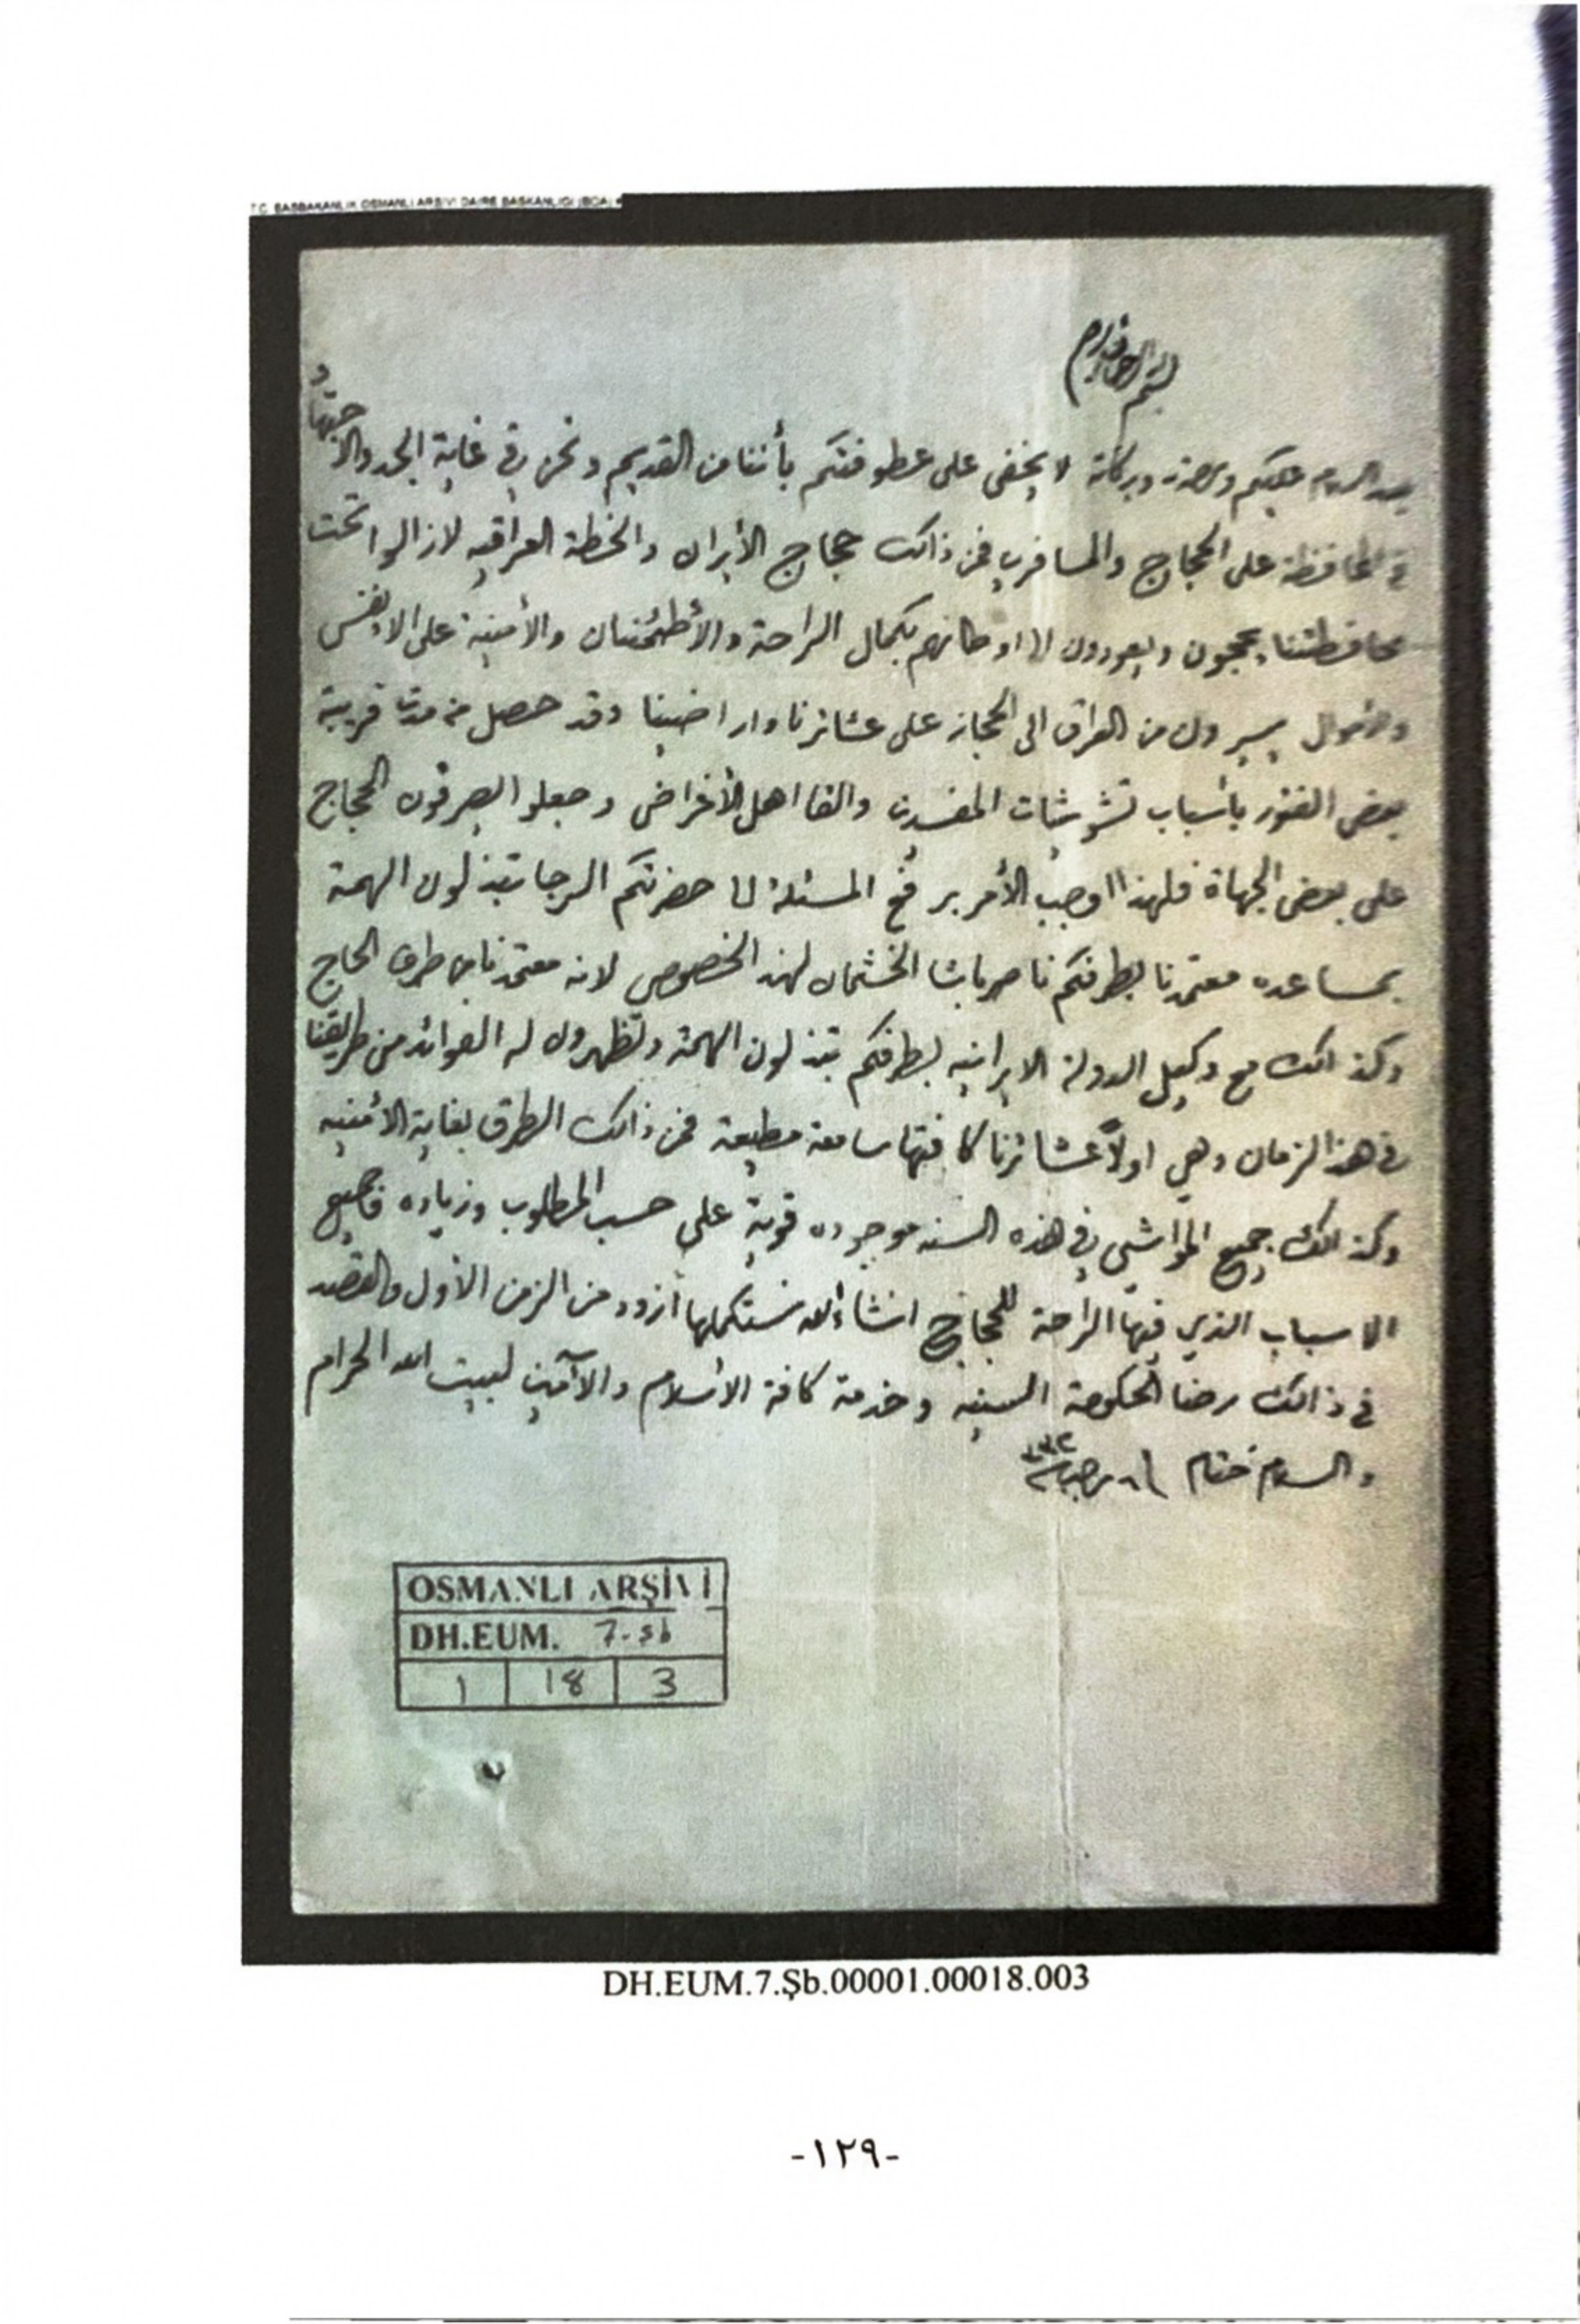 T.C. BASBAKANLIK OSMANLI ARSIVI DAIRE BASKANLIGI (BOA)
بسم الله الرحمن الرحيم
بعد السلام عليكم ورحمة وبركاته لا يخفى على عطوفتكم بأننا من القديم ونحن في غاية الجد والاجتهاد
في المحافظة على الحجاج والمسافرين فمن ذالك حجاج الأيران والخطة العراقيه لازالوا تحت
محافظتنا يحجون ويعودون الا اوطانهم بكمال الراحة والأطمئنان والأمنية على الانفس
والاموال يسيرون من العراق الى الحجاز على عشائرنا واراضينا وقد حصل من مدت قريبة
بعض الفتور بأسباب تشويشات المفسدين والقا اهل الأغراض وجعلو ايصرفون الحجاج
على بعض الجهاة فلهذا اوجب الأمر بر فع المسئلة لنا حضرتكم الرجا تبذلون الهمة
بمساعده معتمدنا بطرفكم ناصر باشا الخشمان لهذ الخصوص لانه معتمدنا من طرف الحاج
وكذالك مع وكيل الدولة الايرانيه بطرفكم تبذلون الهمة وتظهرون له الفوائد من طريقنا
في هذ الزمان وهي اولاً عشائرنا كافتها سامعة مطيعة فمن ذالك الطرق بغاية الأمنيه
وكذالك جميع المواشي في هذه السنه موجوده قوية على حسب المطلوب وزياده فجميع
الاسباب الذي فيها الراحة للحجاج انشاءالله نستكملها ازود من الزمن الأول والقصد
في ذالك رضا الحكومة السنيه وخدمة كافة الاسلام والآمين لبيت الله الحرام
والسلام ختام رجب ٣٣٢
OSMANLI ARŞİVİ
DH.EUM. 7.Şb
1 18 3
DH.EUM.7.Şb.00001.00018.003
-١٢٩-